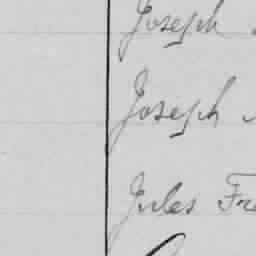 Joseph
Joseph
Jules Fre